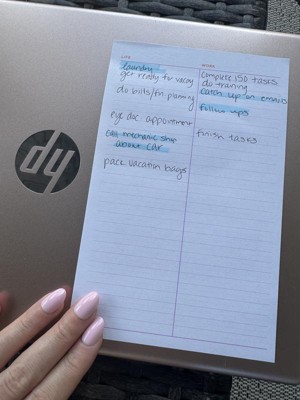 LIFE
laundry
get ready for vacay
do bills/fin. planning
eye doc appointment
call mechanic shop
about car
pack vacation bags
WORK
complete 150 tasks
do training
catch up on emails
follow ups
finish tasks
hp